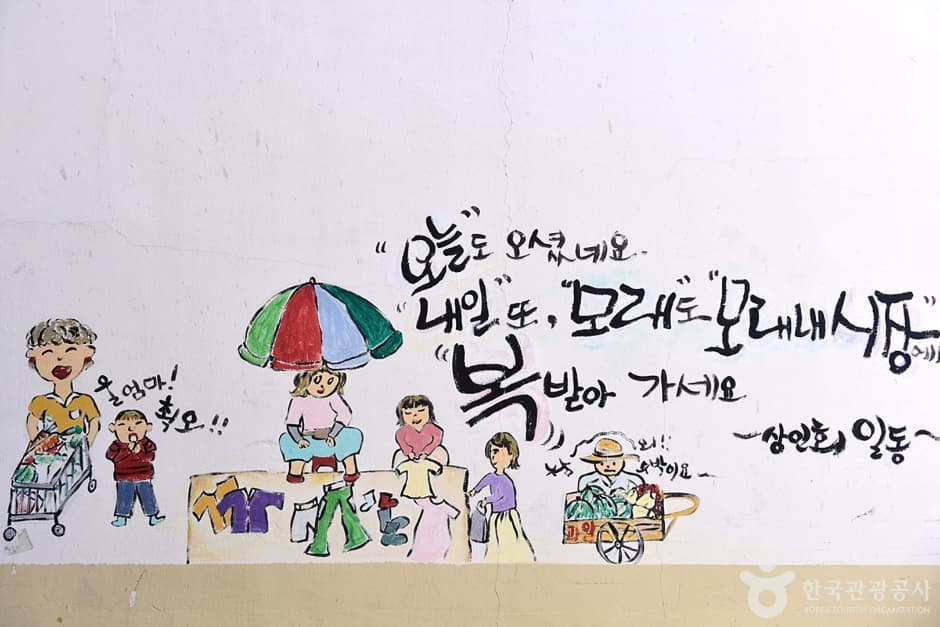 "오늘"도 오셨네요.
"내일"또, "모래"도 "모래내시장"에
"복" 받아 가세요
~상인회 일동~
울엄마!
최오!!
외!!
수박이요~
과일
한국관광공사
KOREA TOURISM ORGANIZATION